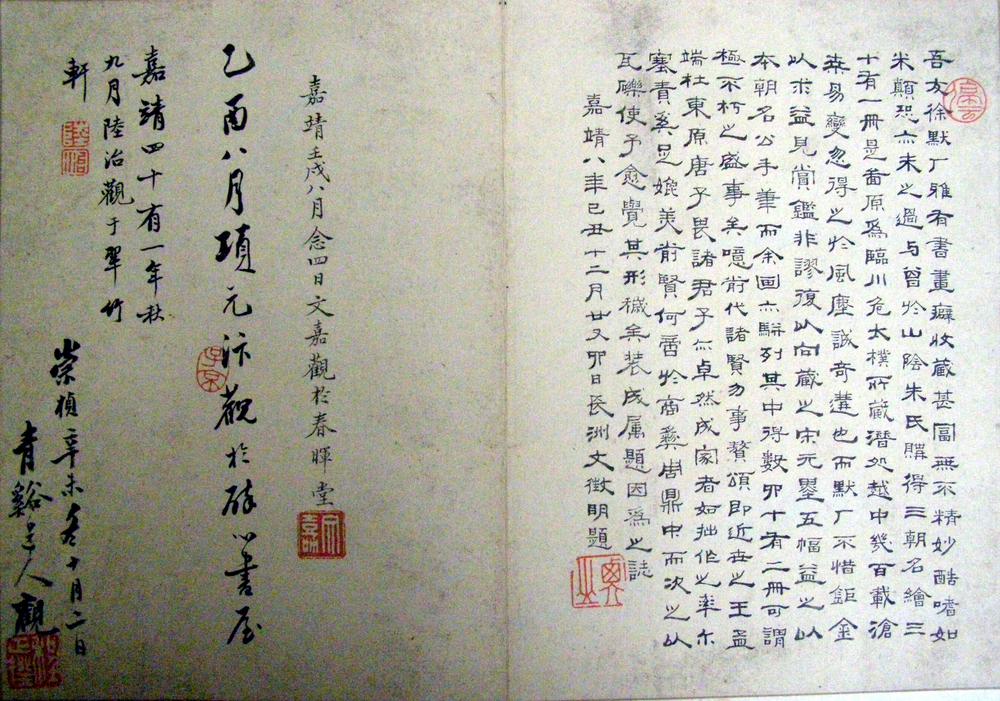 吾友徐默厂雅有書畫癖收藏甚富無不精妙酷嗜如
米顛恐亦未之過与曾於山陰朱氏購得三朝名繪三
十有一冊是啚原為臨川危太樸所藏潛処越中幾百載滄
桒易變忽得之於風塵誠奇遘也而默厂不惜鉅金
以求益見賞鑑非謬復以向藏之宋元墨五幅益之以
本朝名公手筆而余画亦駢列其中得數卯十有二冊可謂
極不朽之盛事矣噫前代諸賢勿事贅頌即近在之王孟
端杜東原唐子畏諸君子亦卓然成家者如拙作之率尔
塞責奚足媲羙前賢何啻於商彝周鼎中而次之以
瓦礫使予愈覺其形穢矣装成属題因為之誌
嘉靖八年己丑十二月廿又卯日長洲文徵明題
嘉靖壬戌八月念四日文嘉觀於春暉堂
文嘉
乙酉八月項元汴觀於醉心書屋
子京
嘉靖四十有一年秋
九月陸治觀于翠竹
軒
陸治
崇禎辛未冬十月二日
青谿道人觀